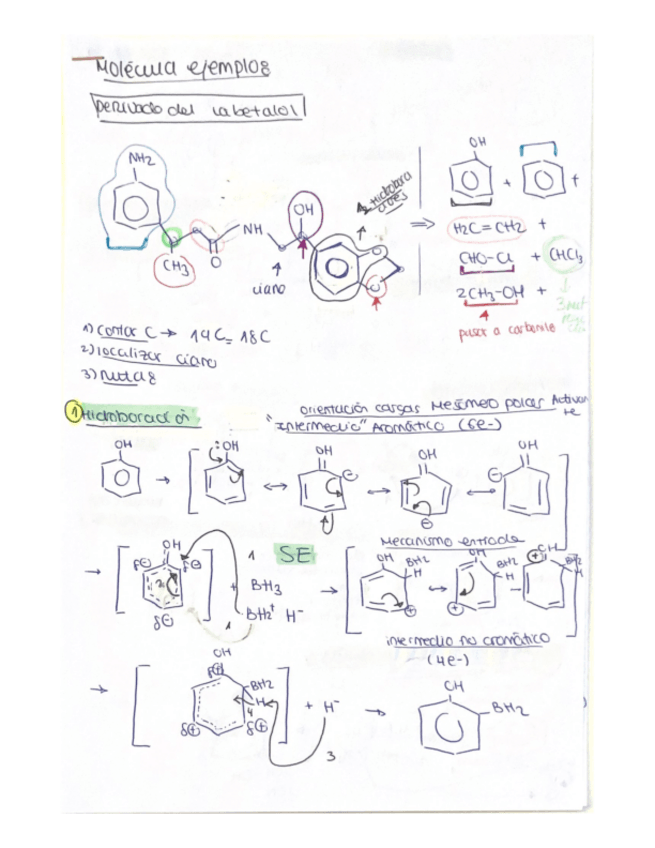 Molécula ejemplos
Derivado del labetalol
NH2
CH3
O
NH
OH
ciano
Hidrobora
ciões
OH
+
+
H2C=CH2 +
CHO-Cl + CHCl3
2CH3-OH +
pasar a carbonile
1) contar C → 14C = 18C
2) localizar ciano
3) Rutas
1 Hidroboración
orientación cargas Mesómeo polas Activan
te
"Intermedio" Aromático (6e-)
OH
→
:OH
OH
OH
OH
SE
Mecanismo entrada
OH
δ⊖
+ BH3
BH2+ H-
1
OH
BH2
H
OH
BH2
H
OH
BH2
H
intermedio no aromático
(4e-)
OH
BH2
H
δ⊕
δ⊕
4
+ H-
→
OH
BH2
3